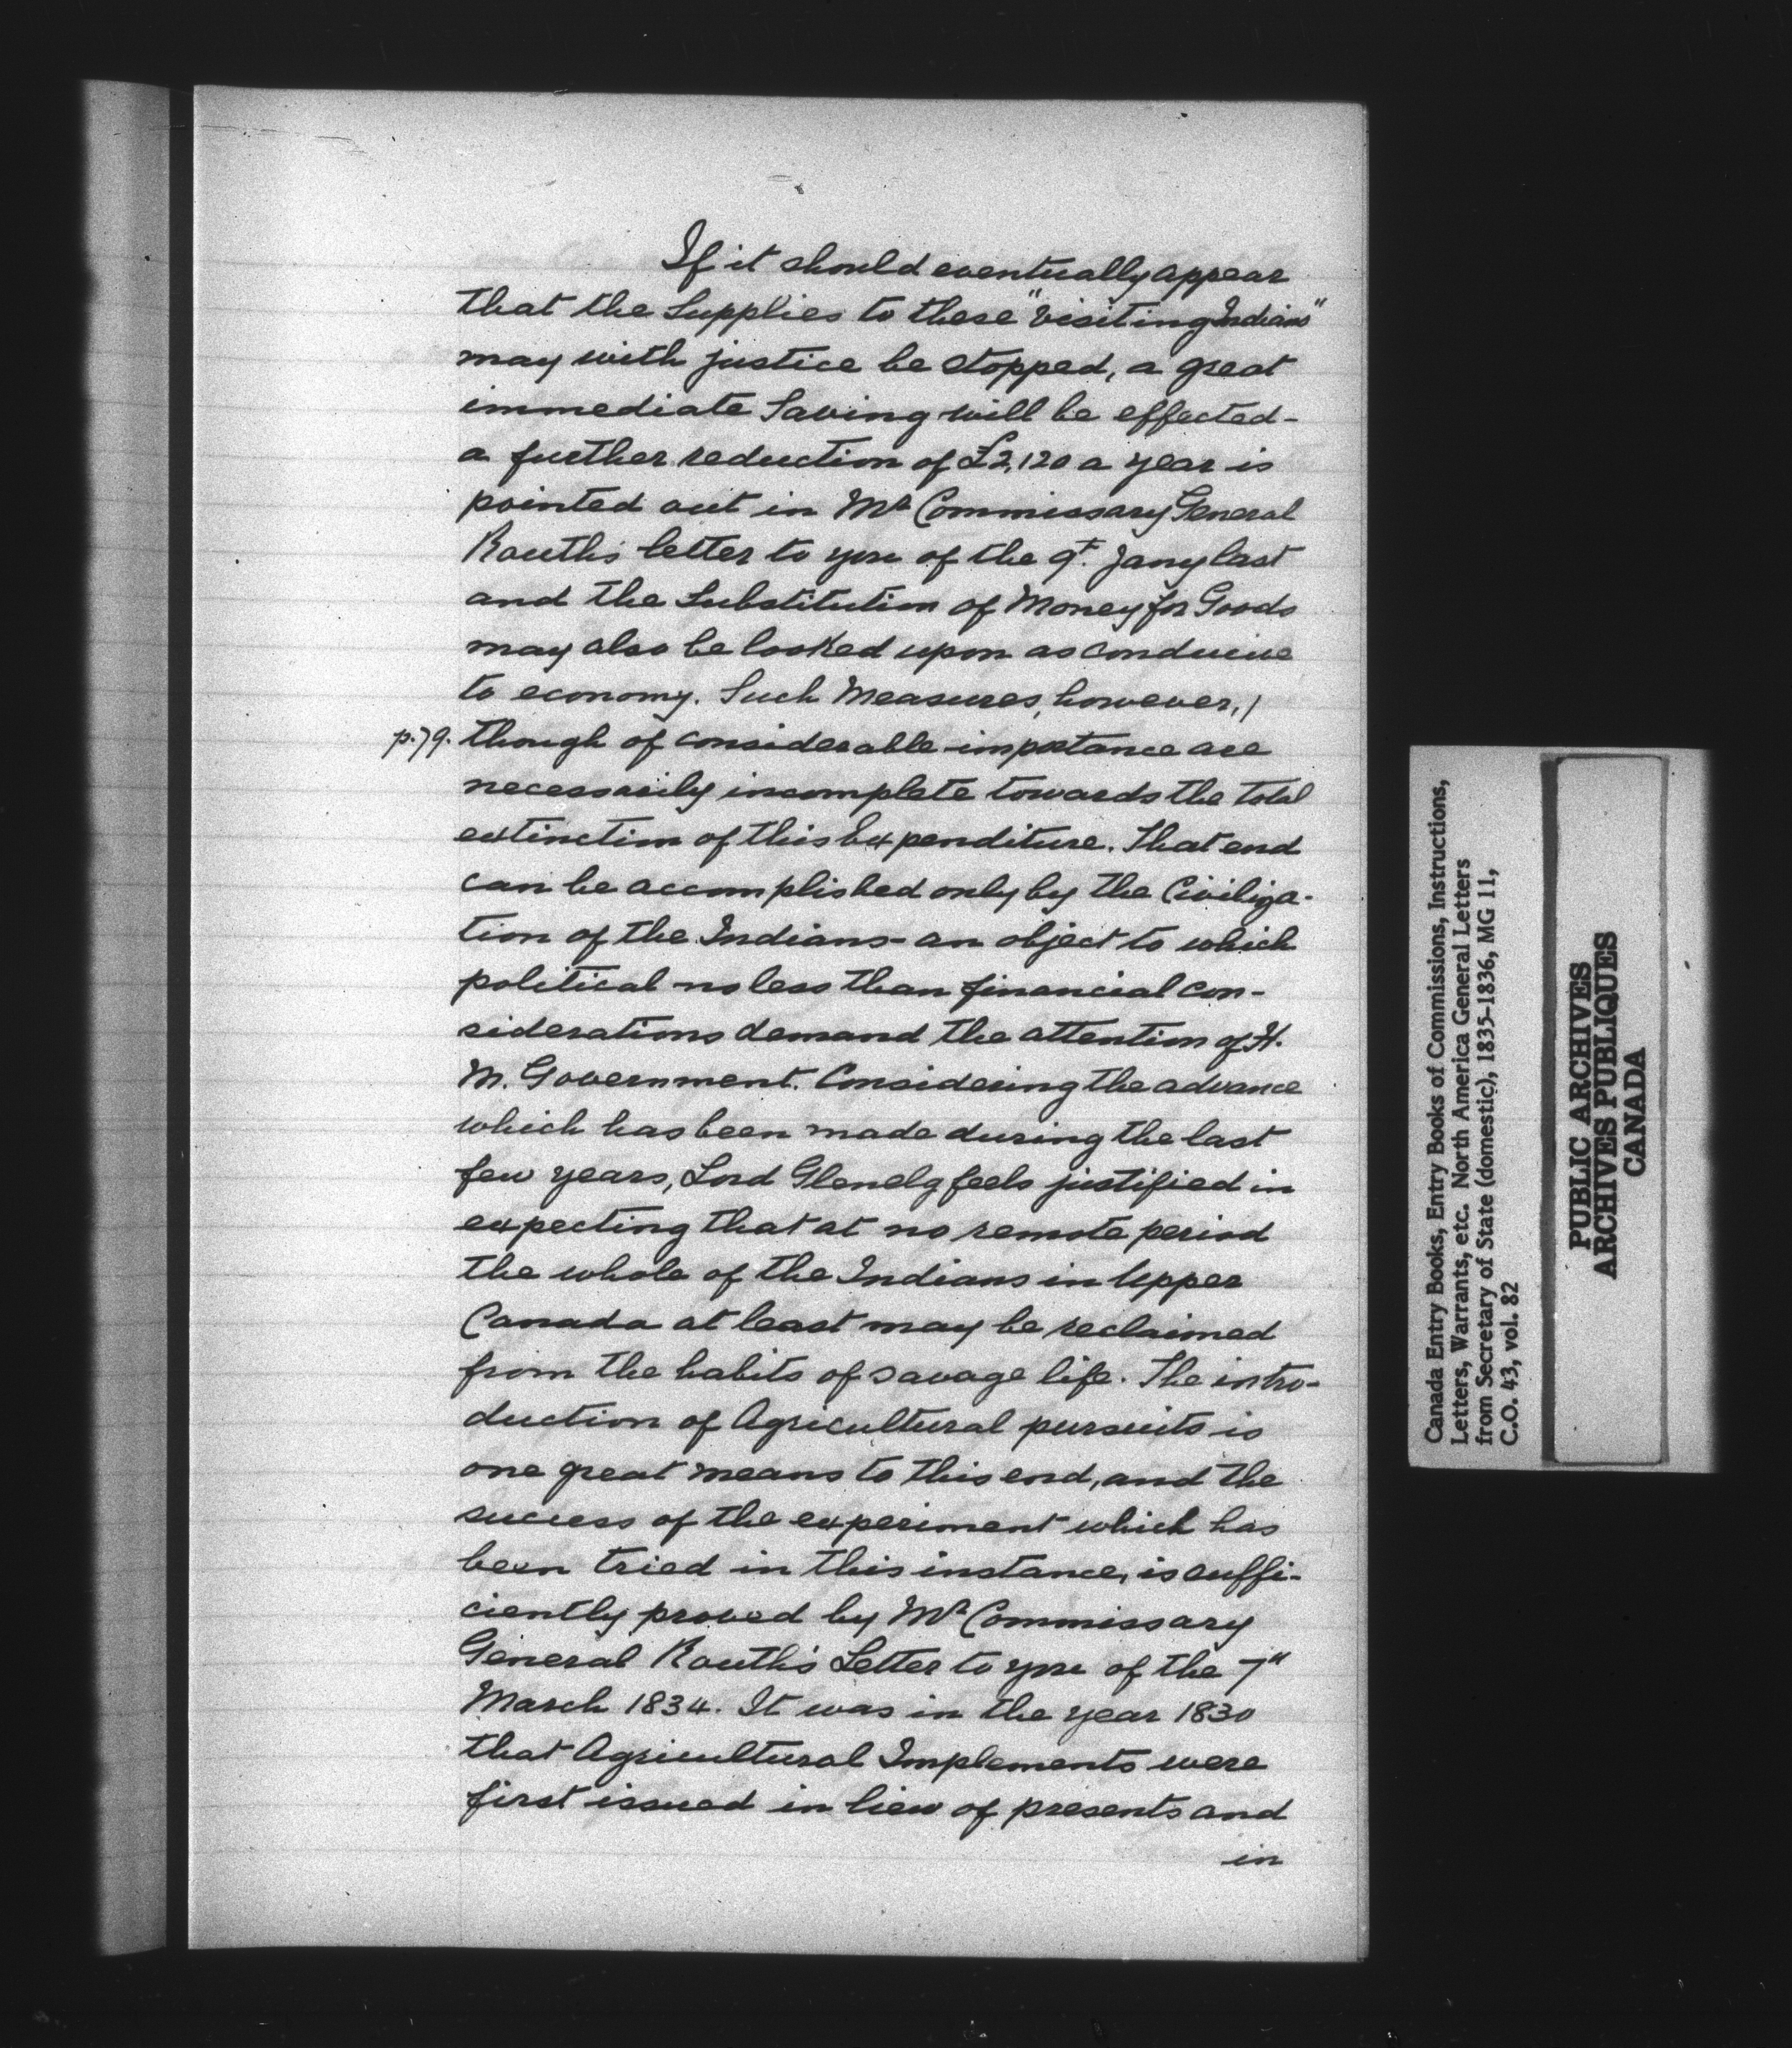 If it should eventually appear
that the Supplies to these "Visiting Indians"
may with justice be stopped, a great
immediate Saving will be effected -
a further reduction of £2,120 a year is
pointed out in Mr Commissary General
Routh's letter to you of the 9th. Jany last
and the Substitution of Money for Goods
may also be looked upon as conducive
to economy. Such Measures, however, /
p.79. though of considerable importance are
necessarily incomplete towards the total
extinction of this Expenditure. That end
can be accomplished only by the Civiliza-
tion of the Indians - an object to which
political no less than financial con-
siderations demand the attention of H.
M. Government. Considering the advance
which has been made during the last
few years, Lord Glenelg feels justified in
expecting that at no remote period
the whole of the Indians in Upper
Canada at least may be reclaimed
from the habits of savage life. The intro-
duction of Agricultural pursuits is
one great means to this end, and the
success of the experiment which has
been tried in this instance, is suffi-
ciently proved by Mr Commissary
General Routh's Letter to you of the 7"
March 1834. It was in the year 1830
that Agricultural Implements were
first issued in lieu of presents and
in
Canada Entry Books, Entry Books of Commissions, Instructions,
Letters, Warrants, etc. North America General Letters
from Secretary of State (domestic), 1835-1836, MG 11,
C.O. 43, vol. 82
PUBLIC ARCHIVES
ARCHIVES PUBLIQUES
CANADA